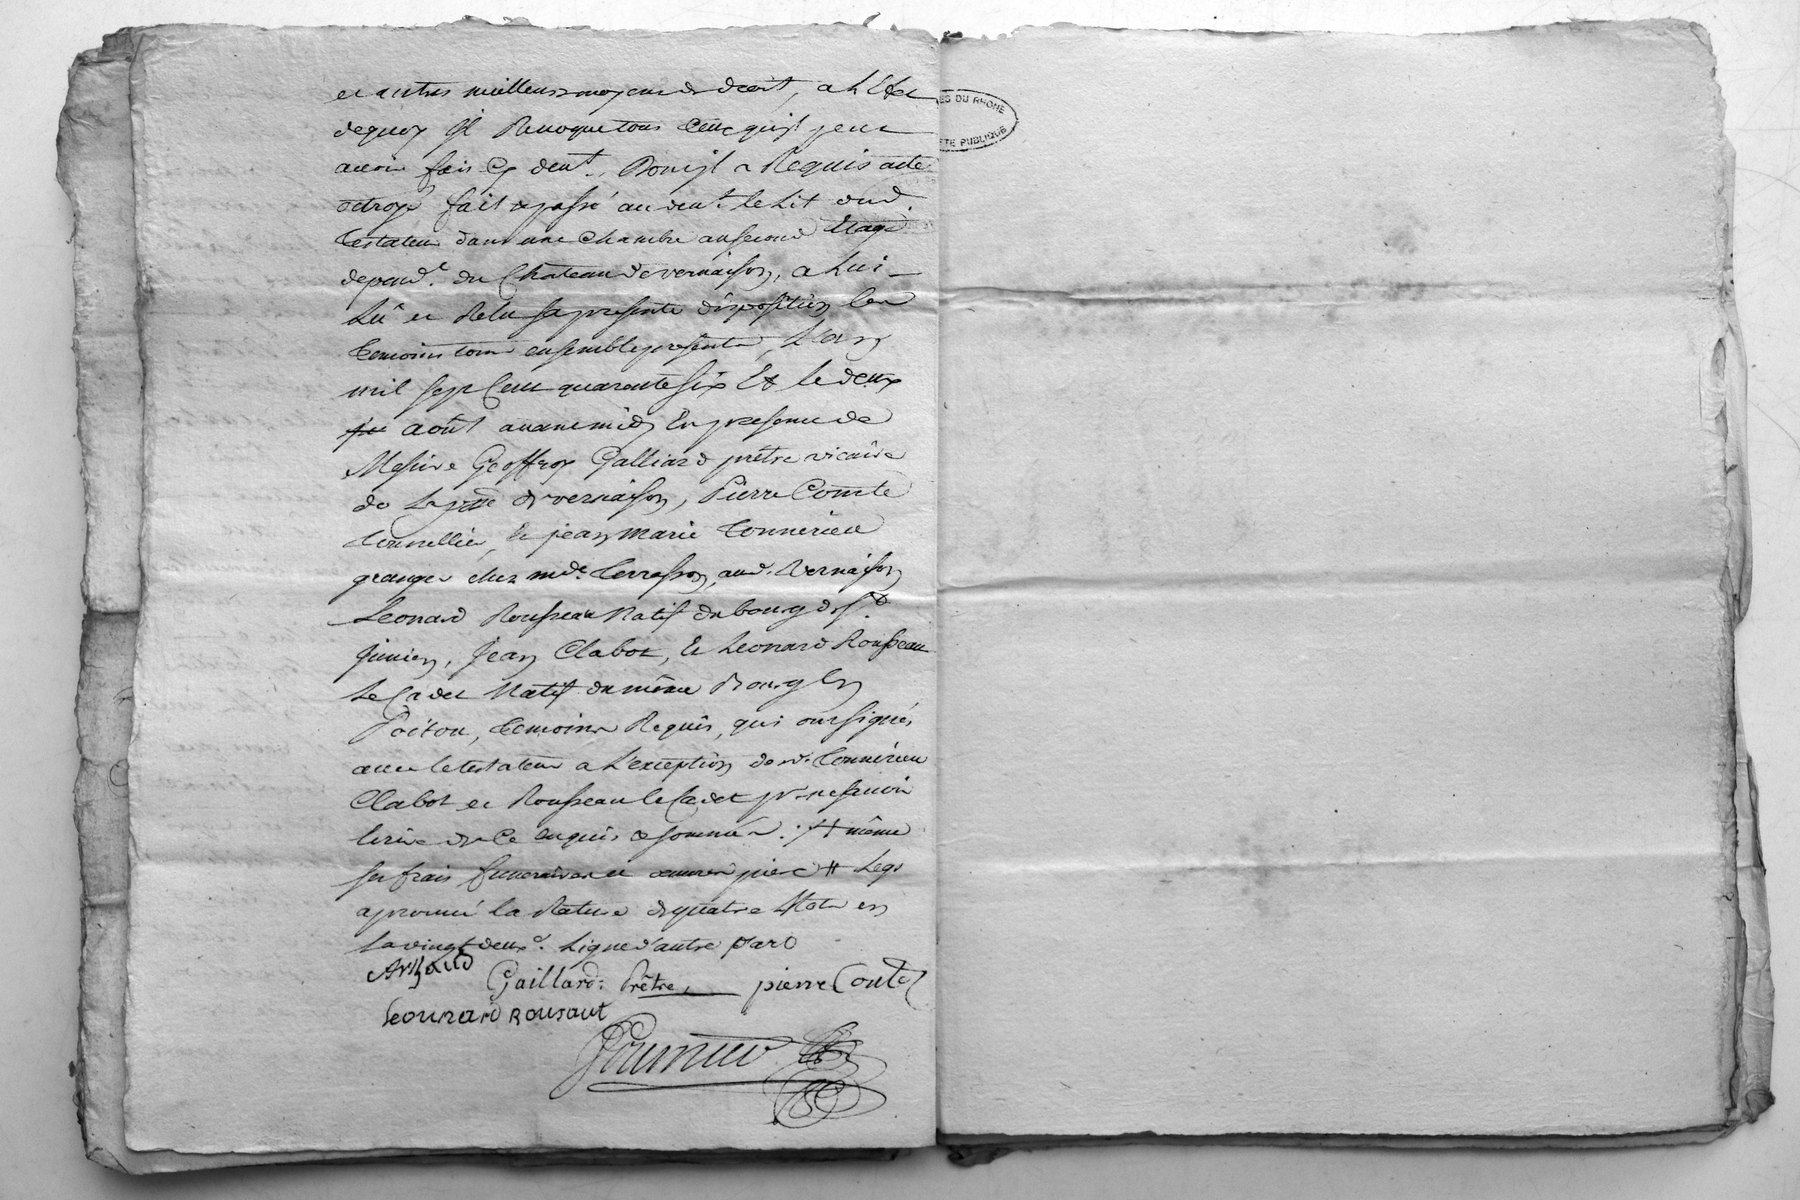 et autres meilleurs moyens de droit, a l'effet
dequoy Il Revoque tous Ceux qu'il peut
avoir fais Cy devt. Dont il a Requis acte
octroyé fait et passé au devt. le Lit dud.
testateur dans une Chambre au second Etage
depend.te du Château de vernaison, a Lui
Lû et Relu sa presente disposition les
temoins tous ensemble presents, L'an
mil sept Cent quarante six Et le deux
août avant midy En presence de
Messire Geoffroy Galliard prêtre vicaire
de La psse de vernaison, Pierre Comte
tonnellier, & jean Marie Tonnerieu
granger chez mde. Terrasson, aud. Vernaison
Leonard Rousseau Natif du bourg de St.
junien, Jean Clabot, & Leonard Rousseau
Le Cadet Natif du même Bourg En
Poitou, temoins Requis, qui ont signés
avec le testateur a L'exception desd. Tonnerieu
Clabot et Rousseau le Cadet pr. ne savoir
Ecrire de Ce enquis et sommés. même
ses frais funeraires et œuvres pies Legs
aprouvé la Rature de quatre Mots en
La vingt deuxe. Ligne d'autre part
Artaud Gaillard. Prêtre, pierre Conte
leonnard Rousaut
Fournier
ES DU RHONE
ETE PUBLIQUE